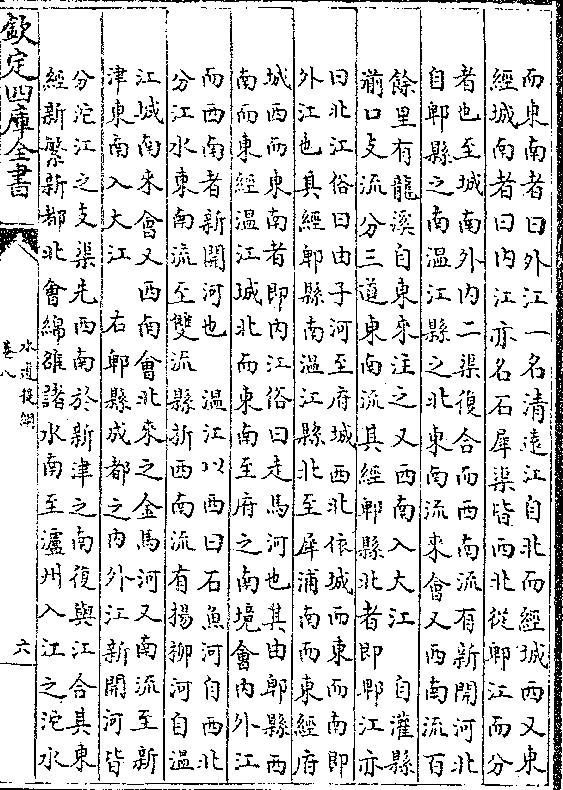 而東南者曰外江一名清遠江自北而經城西又東
經城南者曰内江亦名石犀渠皆西北從郫江而分
者也至城南外内二渠復合而西南流有新開河北
自郫縣之南温江縣之北東南流來會又西南流百
餘里有龍溪自東來注之又西南入大江　自灌縣
湔口支流分三道東南流其經郫縣北者即郫江亦
曰北江俗曰由子河至府城西北依城而東而南即
外江也其經郫縣南温江縣北至犀浦南而東經府
城西而東南者即内江俗曰走馬河也其由郫縣西
南而東經温江城北而東南至府之南境會内外江
而西南者新開河也　温江以西曰石魚河自西北
分江水東南流至雙流縣折西南流有楊柳河自温
江城南來會又西南會北來之金馬河又南流至新
津東南入大江　右郫縣成都之内外江新開河皆
分沱江之支渠先西南於新津之南復與江合其東
經新繁新都北會綿雒諸水南至瀘州入江之沱水
欽定四庫全書
水道提綱
卷八
六